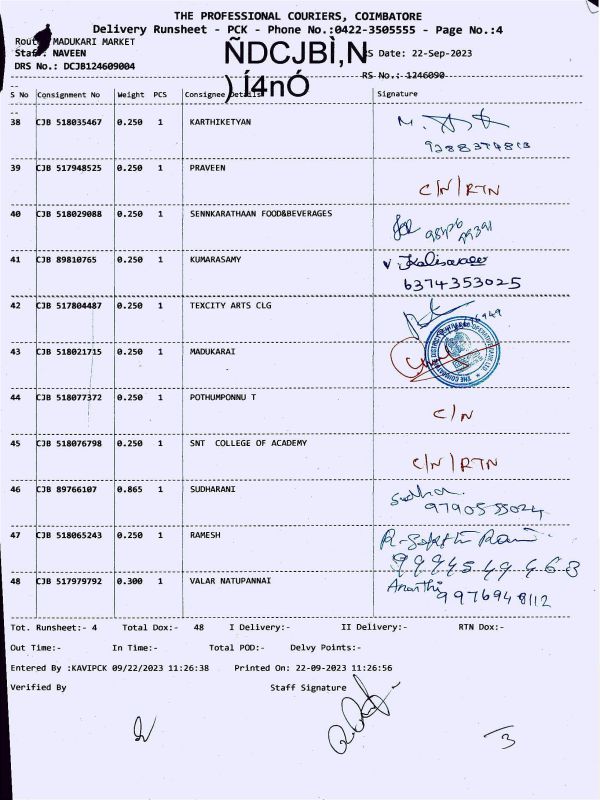 THE PROFESSIONAL COURIERS, COIMBATORE
Delivery Runsheet - PCK - Phone No.:0422-3505555 - Page No.:4
Route: MADUKARI MARKET
Staff: NAVEEN ÑDCJBÌ,N RS Date: 22-Sep-2023
DRS No.: DCJB124609004 ) Í4nÓ RS No.: 1246090
S No Consignment No Weight PCS Consignee Details Signature
38 CJB 518035467 0.250 1 KARTHIKETYAN
39 CJB 517948525 0.250 1 PRAVEEN
C/N/RTN
40 CJB 518029088 0.250 1 SENNKARATHAAN FOOD&BEVERAGES
41 CJB 89810765 0.250 1 KUMARASAMY
6374353025
42 CJB 517804487 0.250 1 TEXCITY ARTS CLG
43 CJB 518021715 0.250 1 MADUKARAI
44 CJB 518077372 0.250 1 POTHUMPONNU T
C/N
45 CJB 518076798 0.250 1 SNT COLLEGE OF ACADEMY
C/N/RTN
46 CJB 89766107 0.865 1 SUDHARANI
Sudha
9790555024
47 CJB 518065243 0.250 1 RAMESH
9994549468
48 CJB 517979792 0.300 1 VALAR NATUPANNAI
Ananthi
9976948112
Tot. Runsheet:- 4 Total Dox:- 48 I Delivery:- II Delivery:- RTN Dox:-
Out Time:- In Time:- Total POD:- Delvy Points:-
Entered By :KAVIPCK 09/22/2023 11:26:38 Printed On: 22-09-2023 11:26:56
Verified By Staff Signature
3